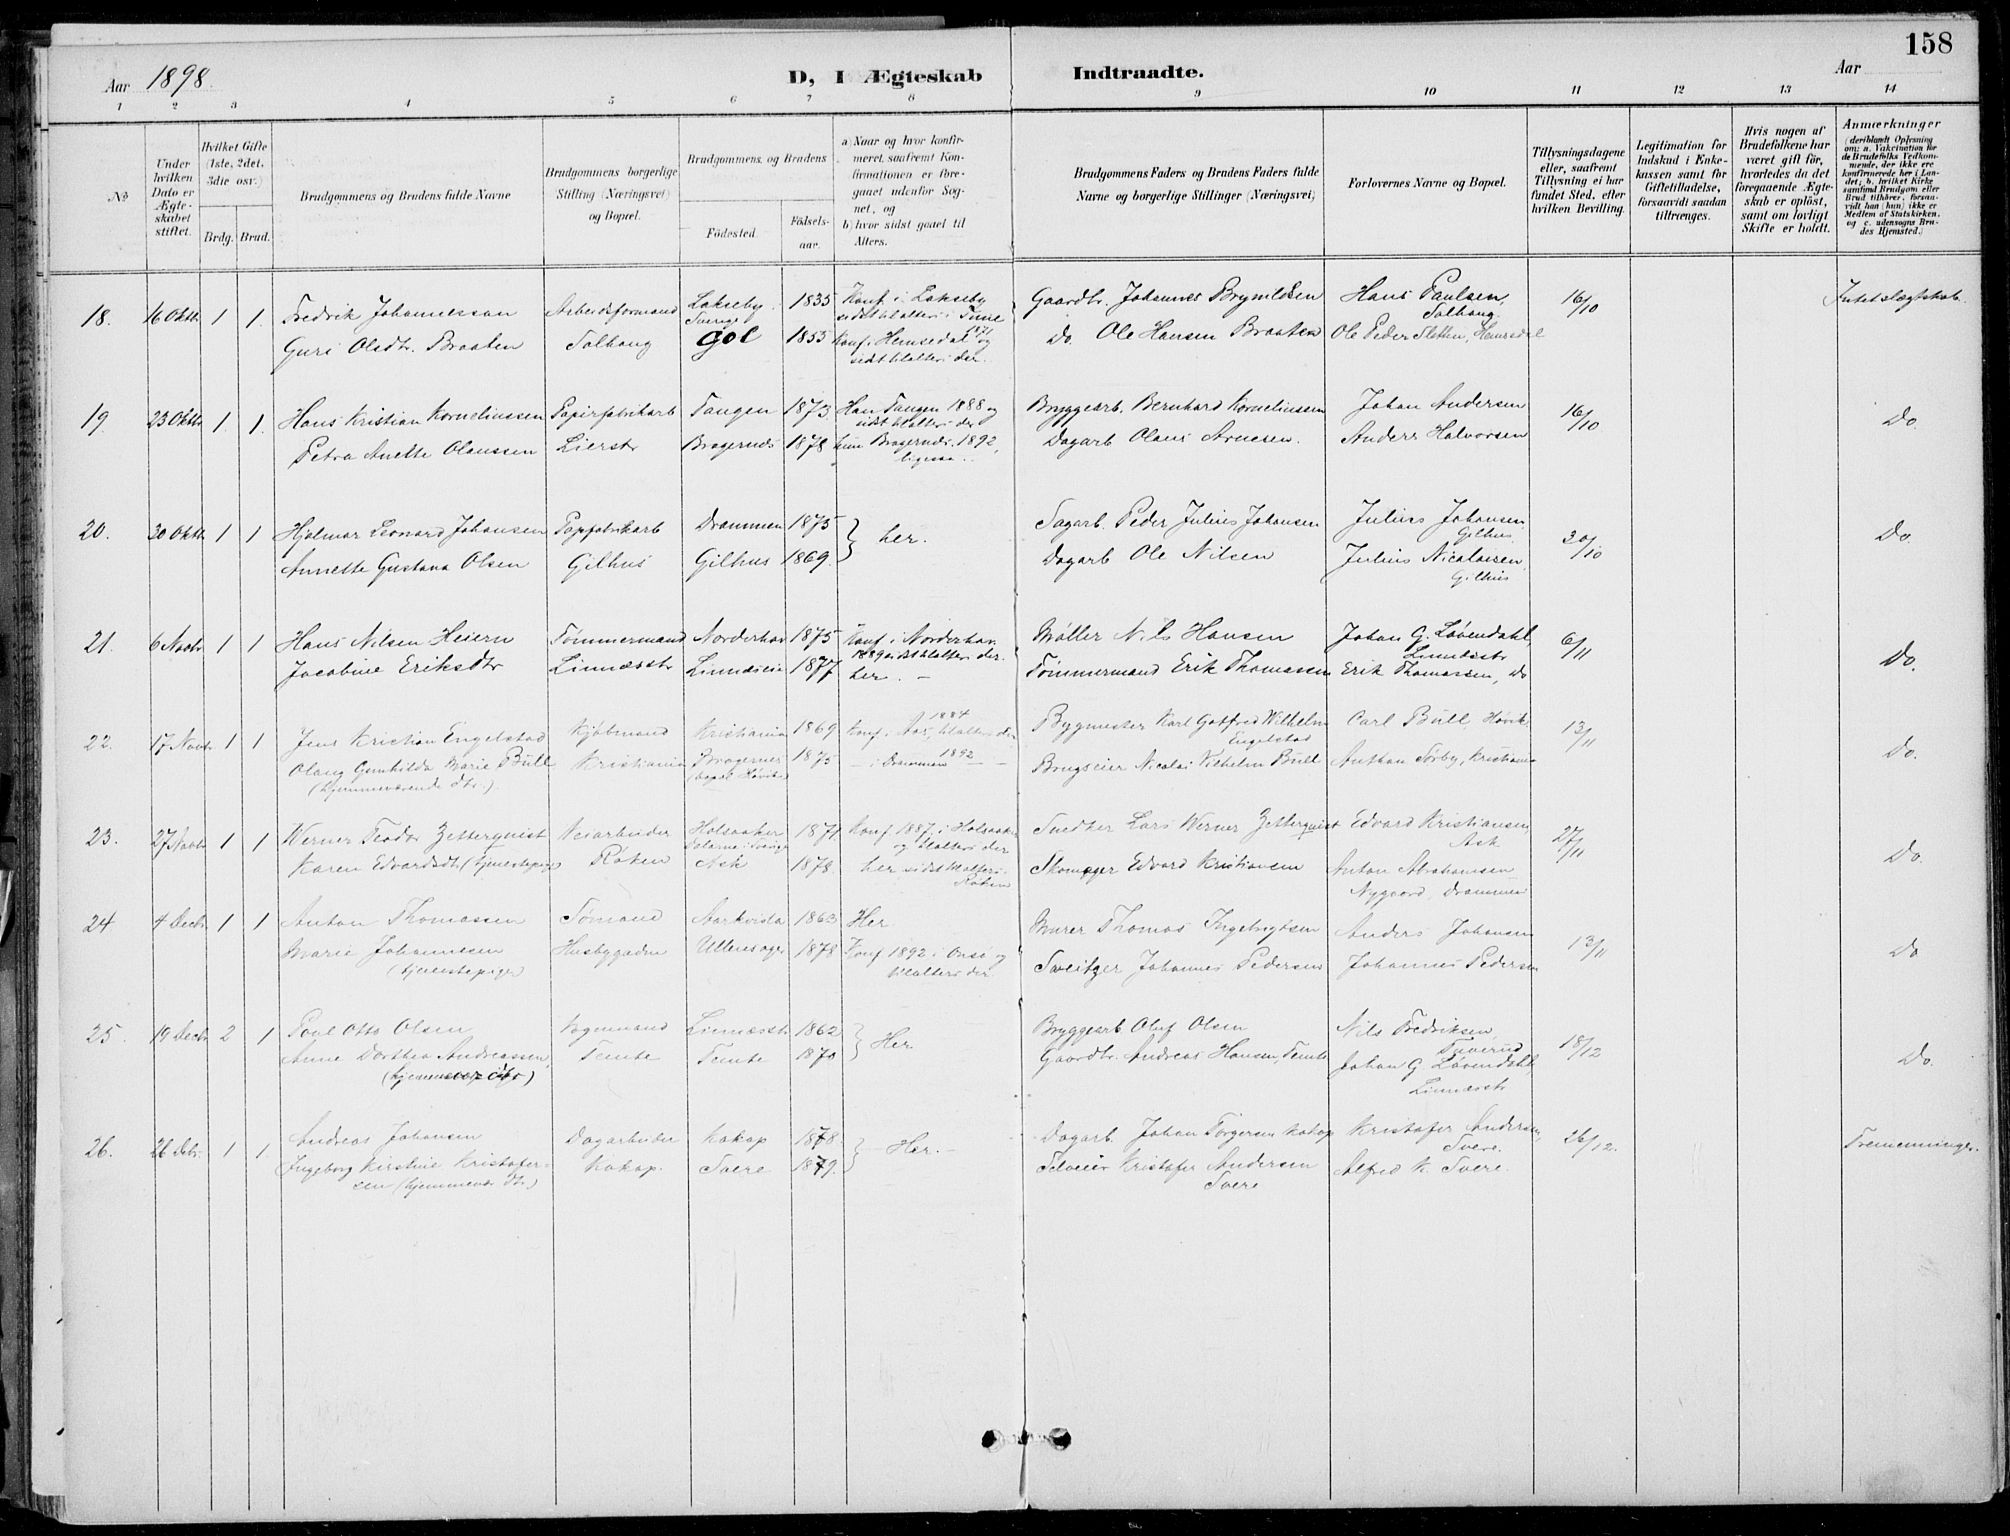 158
Aar 1898.
D, I Ægteskab Indtraadte.
Aar
1 2 3 4 5 6 7 8 9 10 11 12 13 14
No
Under hvilken Dato er Ægteskabet stiftet.
Hvilket Gifte (1ste, 2det, 3die osv.)
Brdg. Brud.
Brudgommens og Brudens fulde Navne
Brudgommens borgerlige Stilling (Næringsvei) og Bopæl.
Brudgommens og Brudens
Födested.
Födselsaar.
a) Naar og hvor konfirmeret, saafremt Konfirmationen er foregaaet udenfor Sognet, og
b) hvor sidst gaaet til Alters.
Brudgommens Faders og Brudens Faders fulde Navne og borgerlige Stillinger (Næringsvei)
Forlovernes Navne og Bopæl.
Tillysningsdagene eller, saafremt Tillysning ei har fundet Sted, efter hvilken Bevilling.
Legitimation for Indskud i Enkekassen samt for Giftetilladelse, forsaavidt saadan tiltrænges.
Hvis nogen af Brudefolkene har været gift för, hvorledes da det foregaaende Ægteskab er oplöst, samt om lovligt Skifte er holdt.
Anmærkninger (deriblandt Oplysning om: a. Vakcination for de Brudefolks Vedkommende, der ikke ere konfirmerede her i Landet; b. hvilket Kirkesamfund Brudgom eller Brud tilhörer, forsaavidt han (hun) ikke er Medlem af Statskirken, og c. udensogns Brudes Hjemsted.)
18. 16 Oktbr 1 1. Fredrik Johannessan Arbeidsformand Lakseby Sverige 1835 Konf. i Lakseby sidst tilalters i Gaardbr. Johannes Brynildsen Hans Paulsen, Solhaug 16/10 Intet slægtskab.
Guri Olsdtr. Braaten Solhaug Gol 1855 Konf. i Hemsedal 1871 og sidst tilalters der. Do. Ole Hansen Braaten Ole Peder Sletten, Hemsedal
19. 23 Oktbr 1. 1. Hans Kristian Korneliussen Papirfabrikarb Tangen 1873 Han Tangen 1888 og sidst tilalters der Bryggearb. Bernhard Korneliussen Johan Andersen 16/10 Do.
Petra Anette Olaussen Lierstr Bragernes 1878 hun Bragernes 1892, ligesaa. Dagarb Olaus Arnesen. Anders Halvorsen
20. 30 Oktbr. 1 1 Hjalmar Leonard Johansen Papfabrikarb Drammen 1875 } her. Sagarb. Peder Julius Johansen Julius Johansen, Gilhus. 30/10 Do.
Annette Gustava Olsen Gilhus Gilhus 1869. Dagarb Ole Nilsen Julius Nicolaisen, Gilhus
21. 6 Novbr 1 1 Hans Nilsen Heiern Tømmermand Norderhov 1875 Konf. i Norderhov 1889 sidst tilalters der. Møller Nils Hansen Johan G. Løvendahl, Linnæsstr 6/11 Do.
Jacobine Eriksdtr Linnæsstr Linnæseie 1877. her. – Tømmermand Erik Thomassen Erik Thomassen, Do
22. 17 Novbr 1 1 Jens Kristian Engelstad Kjøbmand Kristiania 1869 Konf. i Aas, 1884 tilalters der Bygmester Karl Gotfred Wilhelm Engelstad Carl Bull, Høvik 13/11 Do.
Olaug Gunhilda Marie Bull (hjemmeværende dtr.) Kristiania Bragernes (bopæl Høvik) 1875 – i Drammen 1892 – Brugseier Nicolai Vilhelm Bull Anthon Sørby, Kristiania
23. 27 Novbr 1 1 Werner Teodor Zetterquist Veiarbeider Holsaaker Dalarne i Sverige 1871 Konf 1887 i Holsaaker og tilalters der Snedker Lars Werner Zetterquist Edvard Kristiansen, Ask 27/11 Do.
Karen Edvardsdtr. (tjenestepige) Røken Ask 1878 her, sidst tilalters i Røken Skomager Edvard Kristiansen Anton Abrahamsen Nygaard, Drammen
24 4 Decbr. 1 1 Anton Thomassen Sømand Aarkvisla 1863 Her Murer Thomas Ingebrigtsen Anders Johansen 13/11 Do
Marie Johannesen (tjenestepige) Husbygaden Ullensager 1878 Konf 1892 i Onsø og tilalters der Sveitzer Johannes Pedersen Johannes Pedersen
25. 19 Decbr 2 1 Paul Otto Olsen Vognmand Linnæsstr 1862 } Her Bryggearb Oluf Olsen Nils Fredriksen, Tuverud 18/12 Do.
Anne Dorthea Andreassen, (hjemmevær. dtr) Temte Temte 1870 Gaardbr. Andreas Hansen, Temte Johan G. Løvendahl, Linnæsstr
26. 26 Debr. 1 1. Andreas Johansen Dagarbeider Kakap 1878. } Her. – Dagarb. Johan Torgersen Kakap Kristofer Andersen, Svere. 26/12. Tremenninge.
Ingeborg Kirstine Kristofersen (hjemmevær dtr.) Kakap. Svere 1879. Selveier Kristofer Andersen Svere Alfred K. Svere.